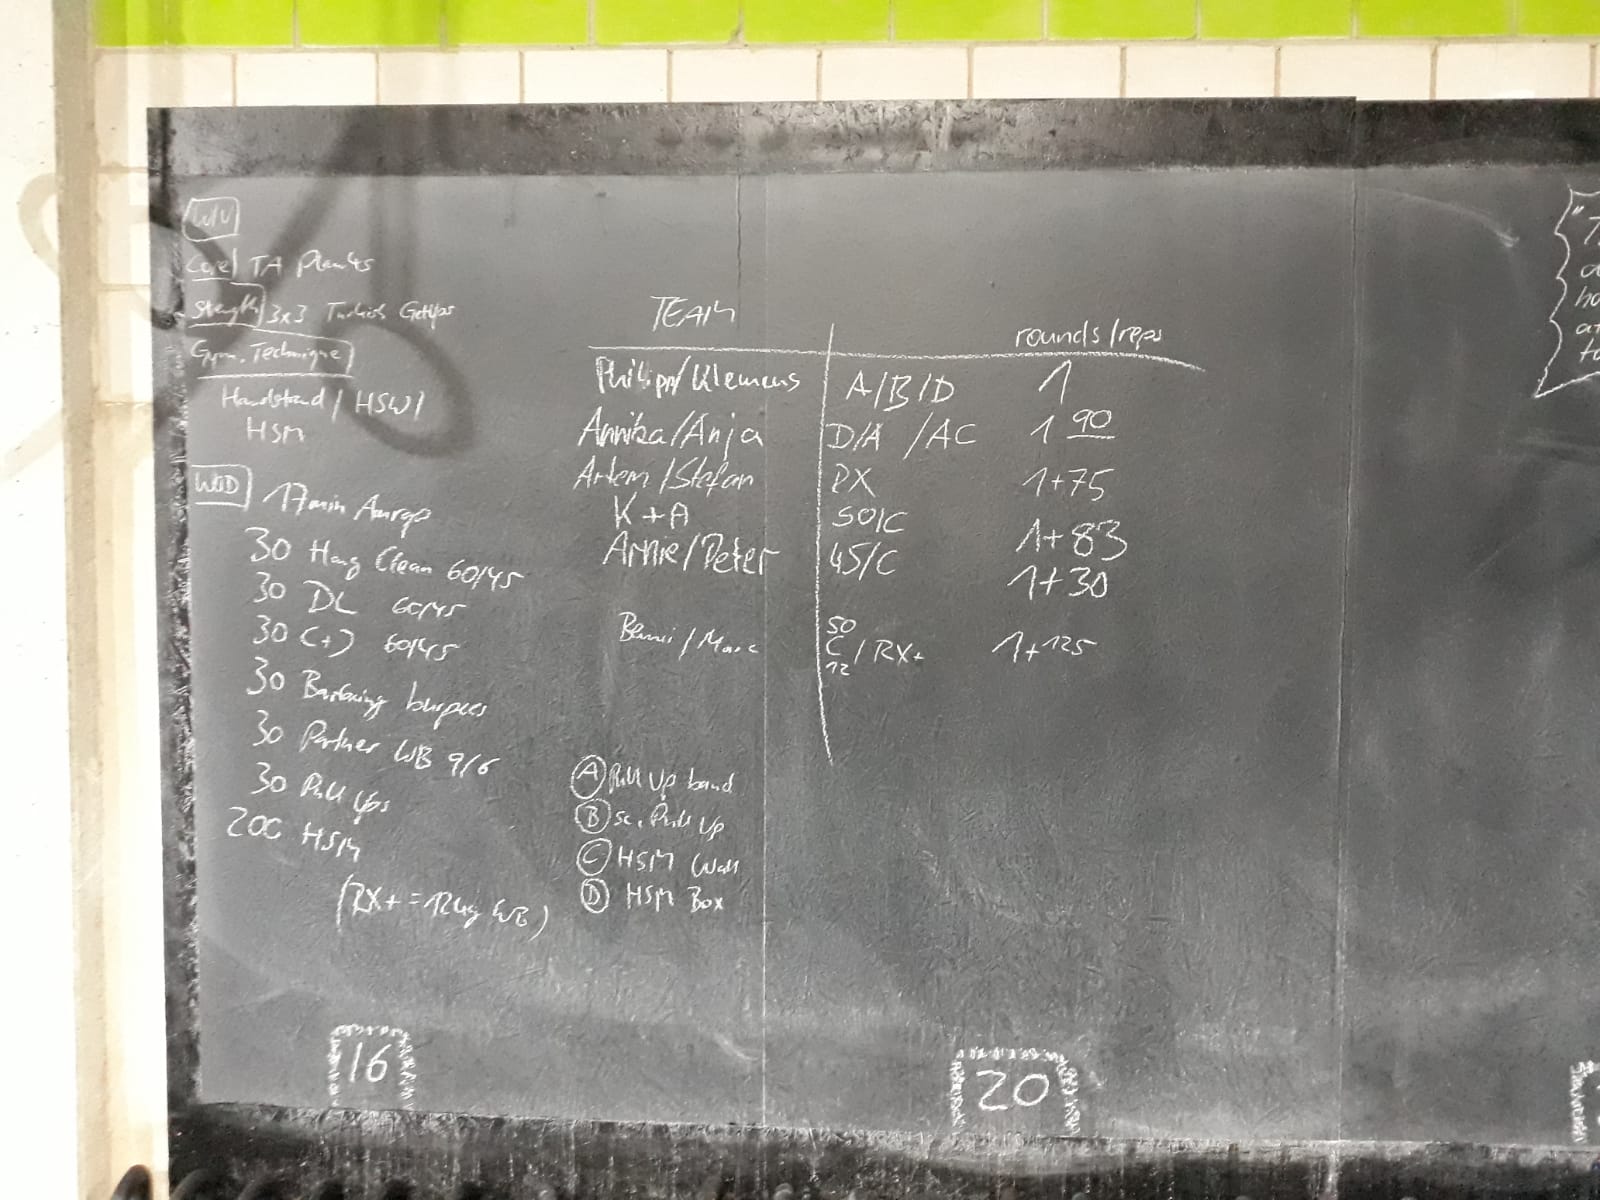 W/U
Core TA Planks
Strength 3x3 Turkish GetUps
Gym. Technique
Handstand / HSW /
HSM
WOD 17min Amrap
30 Hang Clean 60/45
30 DL 60/45
30 C+J 60/45
30 Barfacing burpees
30 Partner WB 9/6
30 Pull Ups
200 HSM
(RX+ = 12kg WB)
TEAM rounds/reps
Philipp/Klemens A/B/D 1
Annika/Anja D/A /AC 1 90
Artem/Stefan RX 1+75
K+A 50/C 1+83
Arnie/Peter 45/C 1+30
/Marc 50 C 12 / RX+ 1+125
A Pull Up band
B sc. Pull Up
C HSM Wall
D HSM Box
16
20
"T
a
ho
at
to